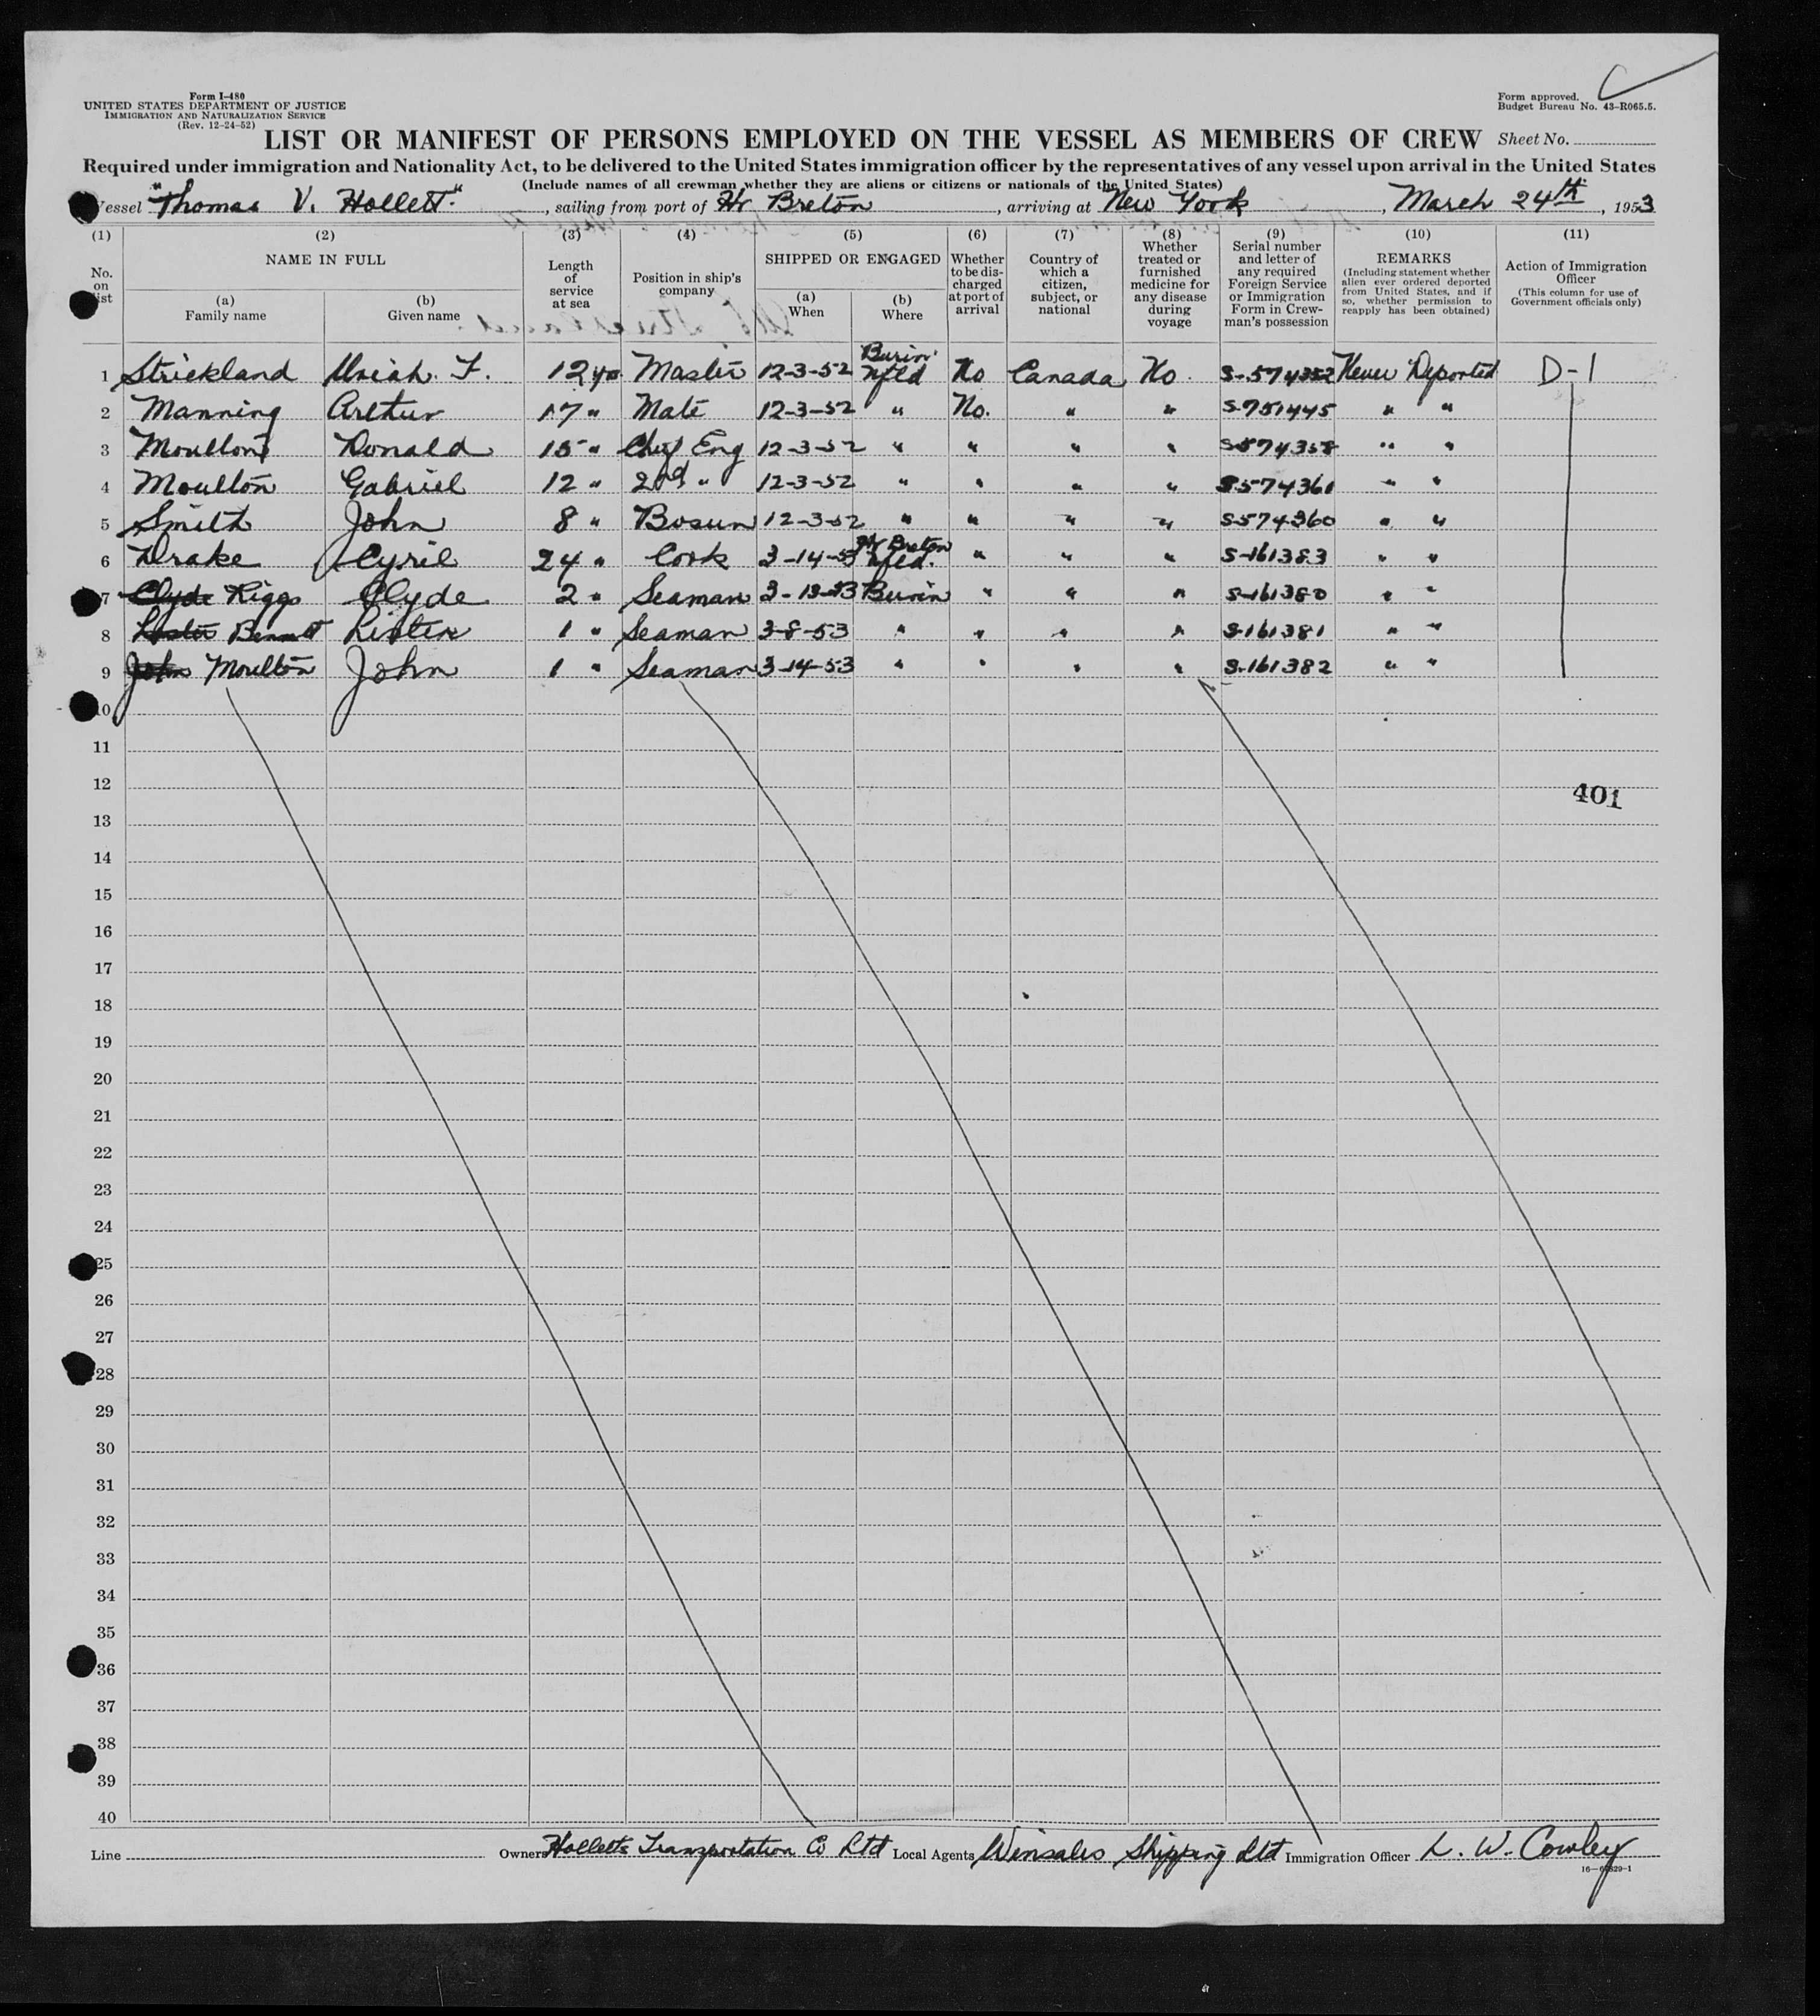 Form I-480
UNITED STATES DEPARTMENT OF JUSTICE
IMMIGRATION AND NATURALIZATION SERVICE
(Rev. 12-24-52)
Form approved.
Budget Bureau No. 43-R065.5.
LIST OR MANIFEST OF PERSONS EMPLOYED ON THE VESSEL AS MEMBERS OF CREW Sheet No.
Required under immigration and Nationality Act, to be delivered to the United States immigration officer by the representatives of any vessel upon arrival in the United States
(Include names of all crewman whether they are aliens or citizens or nationals of the United States)
Vessel "Thomas V. Hollett", sailing from port of Hr Breton, arriving at New York, March 24th, 1953
(1) (2) (3) (4) (5) (6) (7) (8) (9) (10) (11)
No. on list
NAME IN FULL
(a) Family name
(b) Given name
Length of service at sea
Position in ship's company
SHIPPED OR ENGAGED
(a) When
(b) Where
Whether to be discharged at port of arrival
Country of which a citizen, subject, or national
Whether treated or furnished medicine for any disease during voyage
Serial number and letter of any required Foreign Service or Immigration Form in Crewman's possession
REMARKS
(Including statement whether alien ever ordered deported from United States, and if so, whether permission to reapply has been obtained)
Action of Immigration Officer
(This column for use of Government officials only)
1 Strickland Uriah. F. 12 yrs Master 12-3-52 Burin Nfld No Canada No. S-574352 Never Deported D-1
2 Manning Arthur 17 " Mate 12-3-52 " No. " " S-751445 " "
3 Moulton Ronald 15 " Chief Eng 12-3-52 " " " " S-574358 " "
4 Moulton Gabriel 12 " 2nd " 12-3-52 " " " " S574361 " "
5 Smith John 8 " Bosun 12-3-52 " " " " S-574360 " "
6 Drake Cyril 24 " Cook 3-14-53 Hr Breton Nfld. " " " S-161383 " "
7 Clyde Riggs Clyde 2 " Seaman 3-13-53 Burin " " " S-161380 " "
8 Lester Bennett Lester 1 " Seaman 3-8-53 " " " " S-161381 " "
9 John Moulton John 1 " Seaman 3-14-53 " " " " S-161382 " "
10
11
12
401
13
14
15
16
17
18
19
20
21
22
23
24
25
26
27
28
29
30
31
32
33
34
35
36
37
38
39
40
Line Owners Holletts Transportation Co Ltd Local Agents Winsales Shipping Ltd Immigration Officer L. W. Cowley